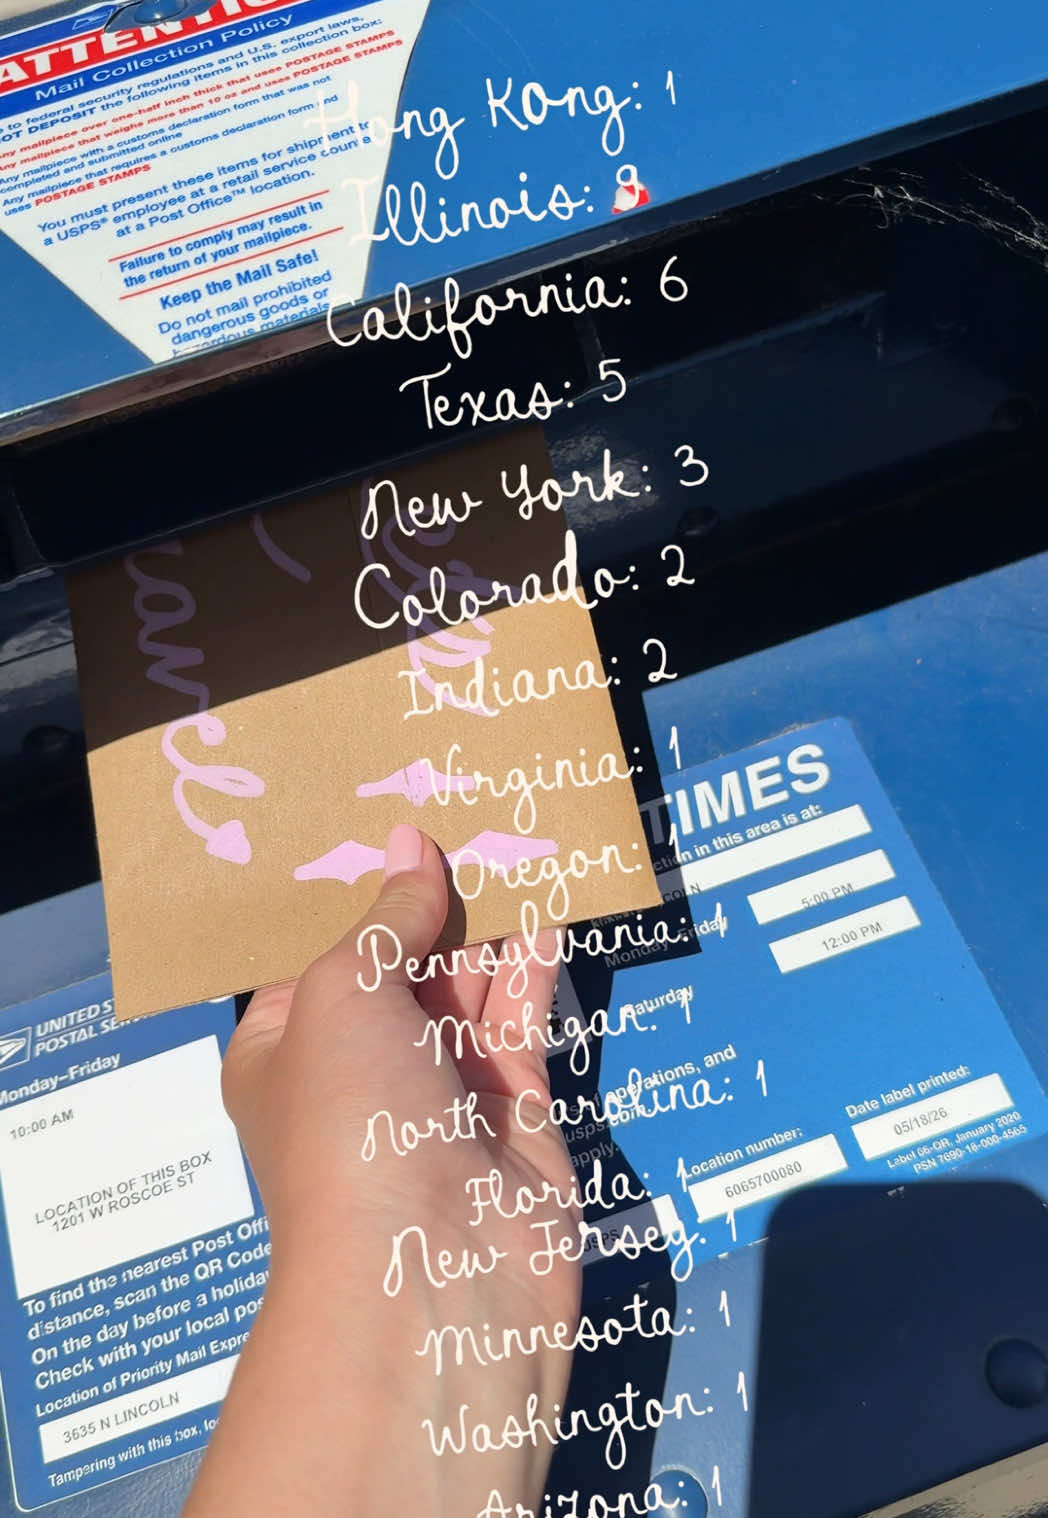 ATTENTIO
Mail Collection Policy
to federal security regulations and U.S. export laws,
OT DEPOSIT the following items in this collection box:
ny mailpiece over one-half inch thick that uses POSTAGE STAMPS
Any mailpiece that weighs more than 10 oz and uses POSTAGE STAMPS
Any mailpiece with a customs declaration form that was not
completed and submitted online
Any mailpiece that requires a customs declaration form and
uses POSTAGE STAMPS
You must present these items for shipment
a USPS® employee at a retail service
at a Post Office™ location.
Failure to comply may result in
the return of your mailpiece.
Keep the Mail Safe!
Do not mail prohibited
dangerous goods or
hazardous materials
Hong Kong: 1
Illinois: 9
California: 6
Texas: 5
New York: 3
Colorado: 2
Indiana: 2
Virginia: 1
Oregon: 1
Pennsylvania: 1
Michigan: 1
North Carolina: 1
Florida: 1
New Jersey: 1
Minnesota: 1
Washington: 1
Arizona: 1
TIMES
ction in this area is at:
COLN
5:00 PM
Monday-Friday
12:00 PM
Saturday
operations, and
usps.com
apply.
Date label printed:
05/18/26
Location number:
6065700080
Label 06-QR, January 2020
PSN 7690-16-000-4565
USPS
UNITED ST
POSTAL SE
Monday–Friday
10:00 AM
LOCATION OF THIS BOX
1201 W ROSCOE ST
To find the nearest Post Offi
distance, scan the QR Code
On the day before a holida
Check with your local pos
Location of Priority Mail Expre
3635 N LINCOLN
Tampering with this box, lo